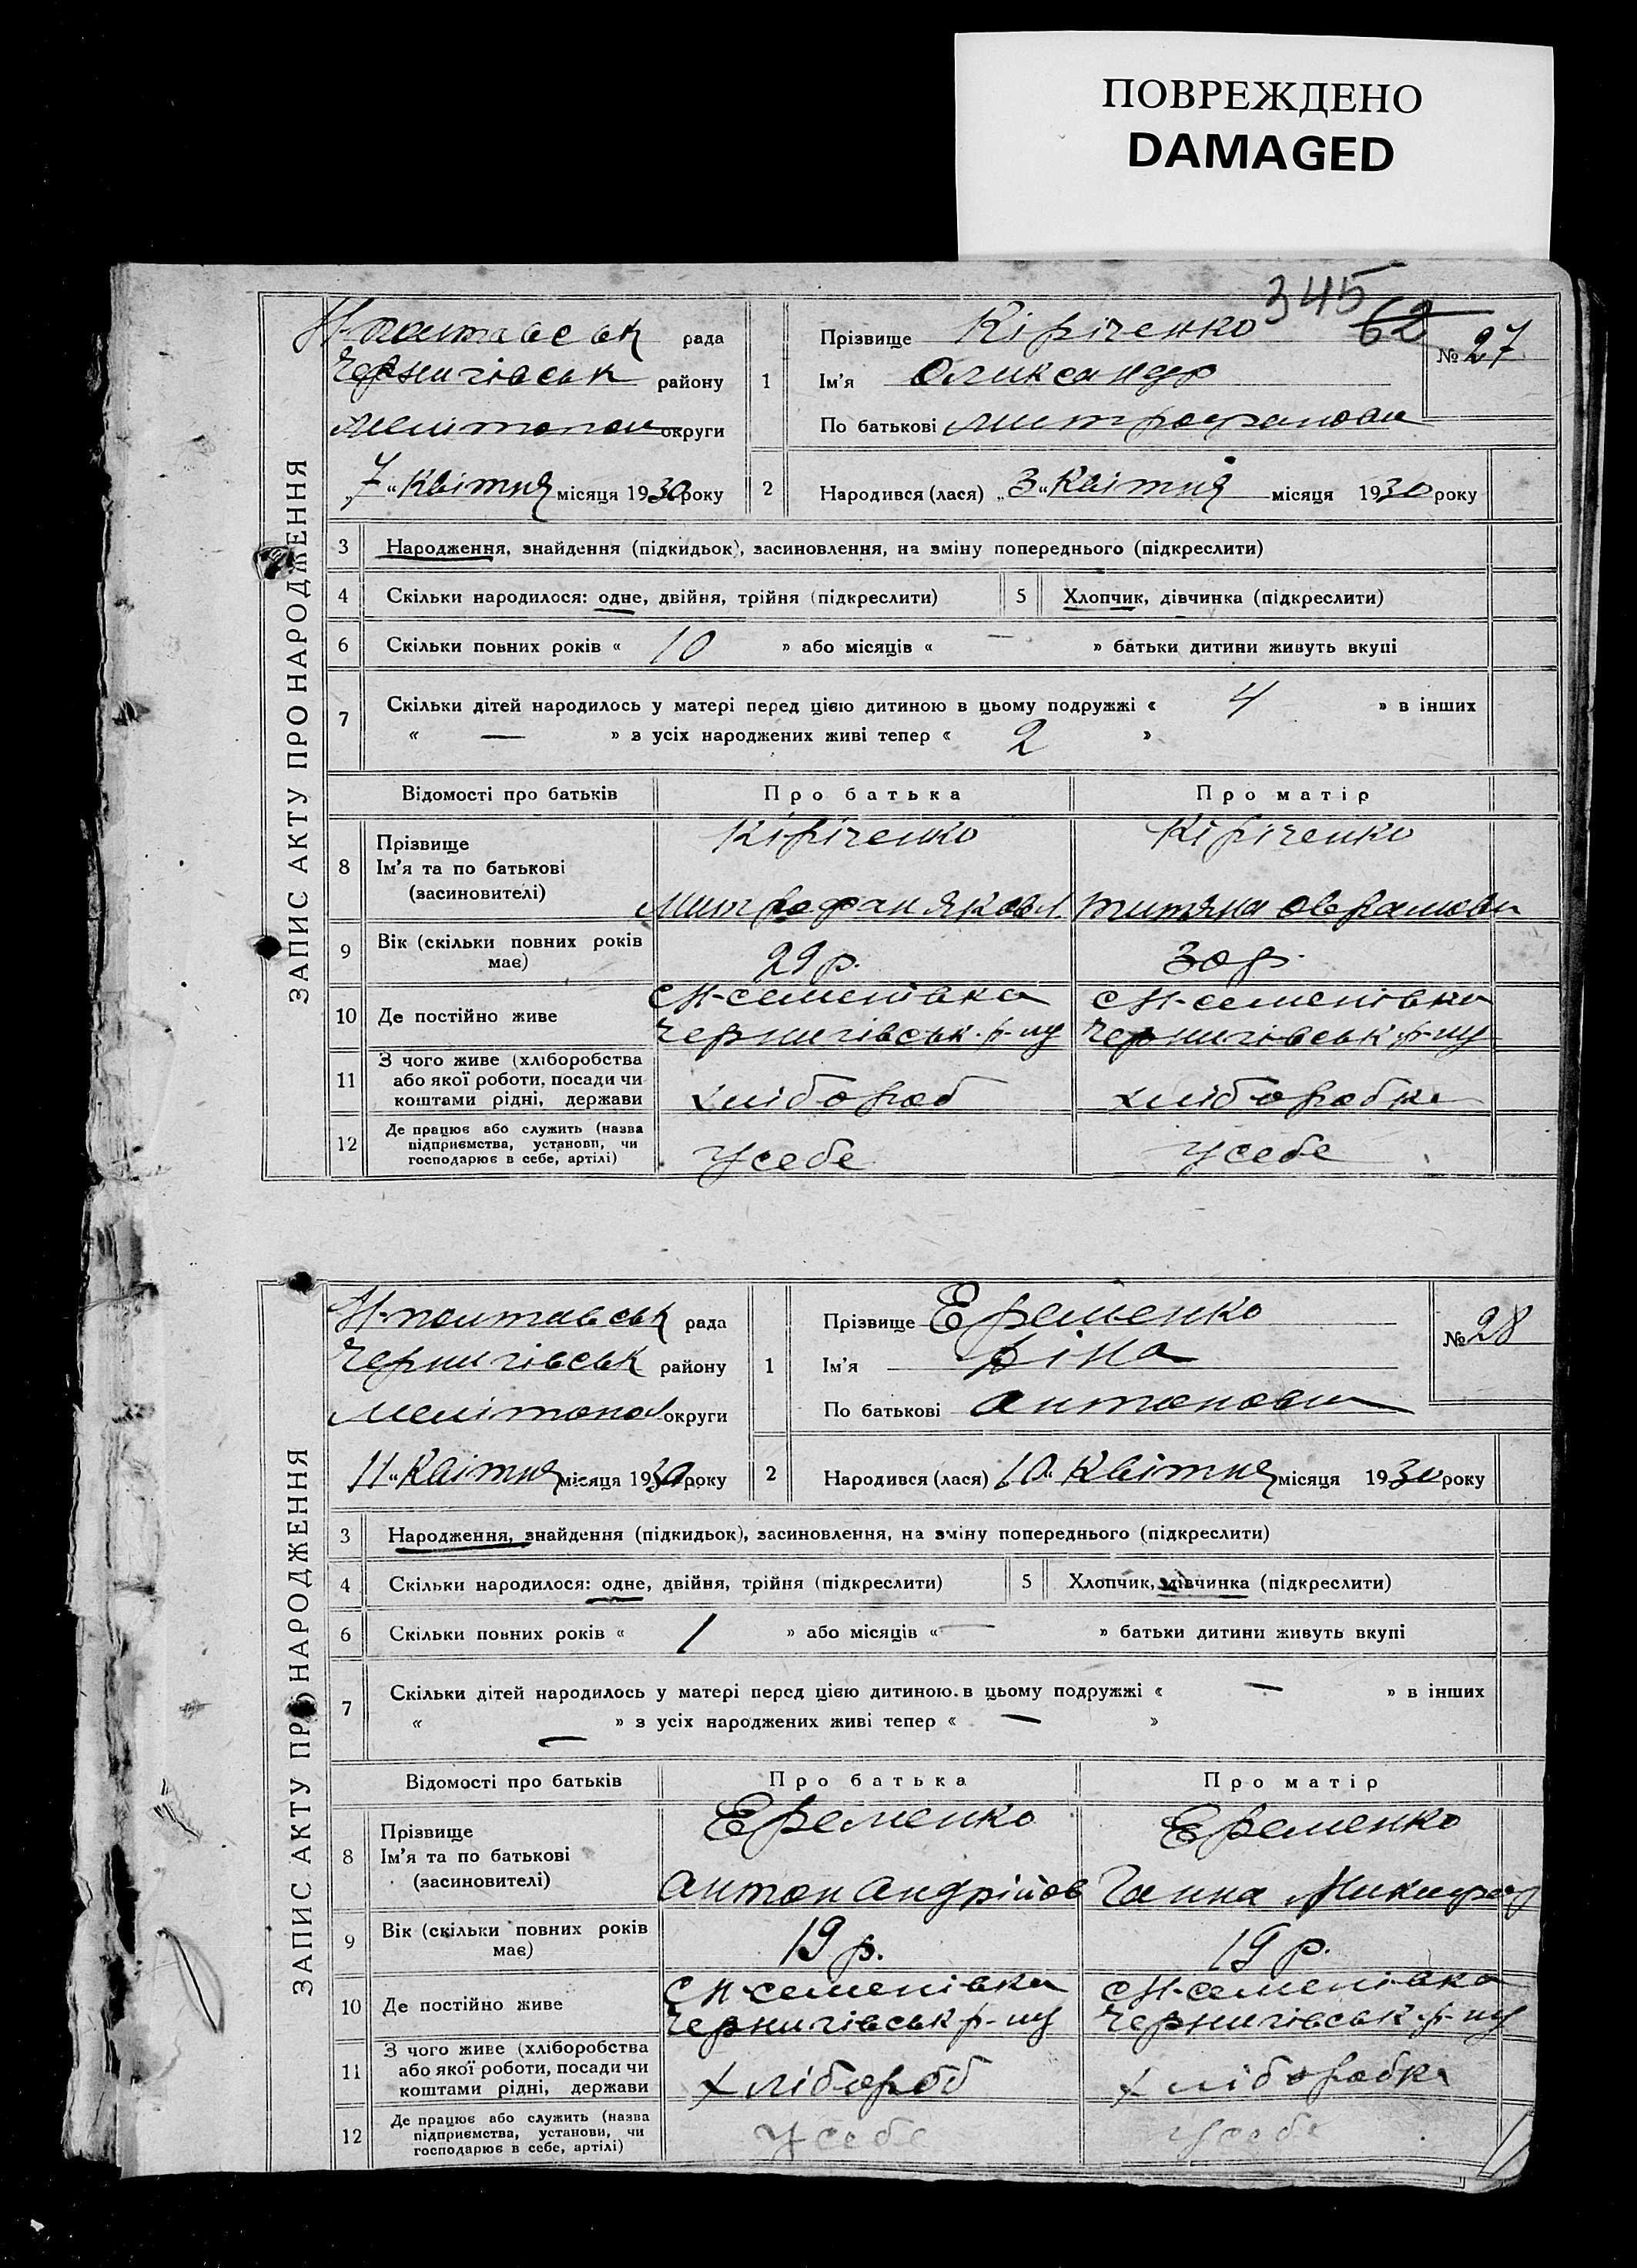 ПОВРЕЖДЕНО
DAMAGED
345
62
ЗАПИС АКТУ ПРО НАРОДЖЕННЯ
Н-полтавськ рада
Чернигівськ району
Мелітопол округи
„7“ Квітня місяця 1930 року
1 Прізвище Кіріченко
Ім'я Олександр
По батькові Митрофанови
№ 27
2 Народився (лася) „3“ Квітня місяця 1930 року
3 Народження, знайдення (підкидьок), засиновлення, на зміну попереднього (підкреслити)
4 Скільки народилося: одне, двійня, трійня (підкреслити) 5 Хлопчик, дівчинка (підкреслити)
6 Скільки повних років « 10 » або місяців « — » батьки дитини живуть вкупі
7 Скільки дітей народилось у матері перед цією дитиною в цьому подружжі « 4 » в інших
« — » з усіх народжених живі тепер « 2 »
Відомості про батьків Про батька Про матір
8 Прізвище Кіріченко Кіріченко
Ім'я та по батькові
(засиновителі) Митрофан Яковл.
9 Вік (скільки повних років має) 29 р. 30 р.
10 Де постійно живе С Н-семенівка С Н-семенівка
Чернигівськ. р-ну Чернигівськ р-ну
11 З чого живе (хліборобства
або якої роботи, посади чи
коштами рідні, держави хлібороб хлиборобка
12 Де працює або служить (назва
підприємства, установи, чи
господарює в себе, артілі) У себе У себе
ЗАПИС АКТУ ПРО НАРОДЖЕННЯ
Н-полтавськ рада
Чернигівськ району
Мелітопол округи
11“ Квітня місяця 1930 року
1 Прізвище Еременко
Ім'я Ріна
По батькові Антонови
№ 28
2 Народився (лася) „10“ Квітня місяця 1930 року
3 Народження, знайдення (підкидьок), засиновлення, на зміну попереднього (підкреслити)
4 Скільки народилося: одне, двійня, трійня (підкреслити) 5 Хлопчик, дівчинка (підкреслити)
6 Скільки повних років « 1 » або місяців « — » батьки дитини живуть вкупі
7 Скільки дітей народилось у матері перед цією дитиною в цьому подружжі « — » в інших
« — » з усіх народжених живі тепер « — »
Відомості про батьків Про батька Про матір
8 Прізвище Еременко Еременко
Ім'я та по батькові
(засиновителі) Антон Андрійов Ганна
9 Вік (скільки повних років має) 19 р. 19 р.
10 Де постійно живе С Н-семенівка С Н-семенівка
Чернигівськ р-ну Чернигівськ р-ну
11 З чого живе (хліборобства
або якої роботи, посади чи
коштами рідні, держави хлібороб хліборобка
12 Де працює або служить (назва
підприємства, установи, чи
господарює в себе, артілі) У себе У себе